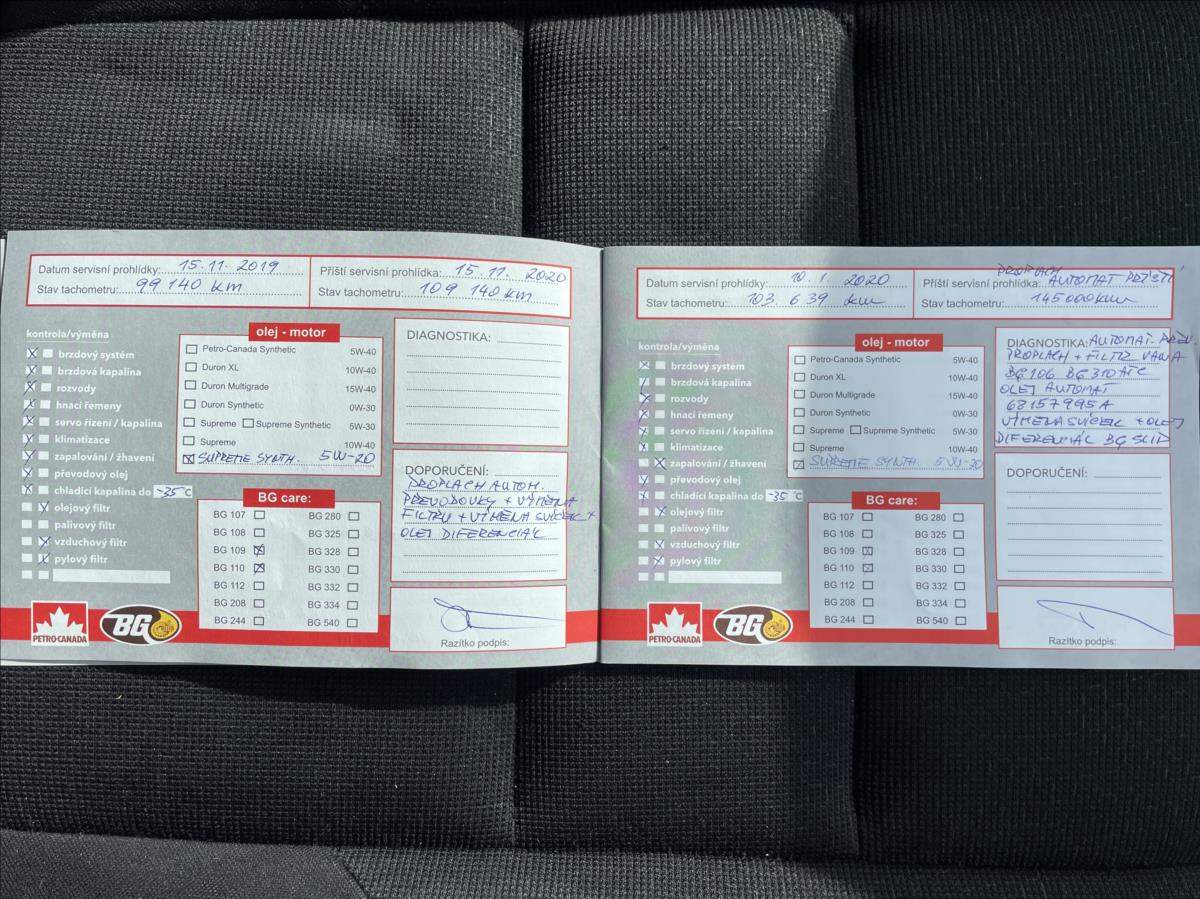 Datum servisní prohlídky: 15.11.2019
Stav tachometru: 99 140 km
Příští servisní prohlídka: 15.11.2020
Stav tachometru: 109 140 km
kontrola/výměna
brzdový systém
brzdová kapalina
rozvody
hnací řemeny
servo řízení / kapalina
klimatizace
zapalování / žhavení
převodový olej
chladící kapalina do -35°C
olejový filtr
palivový filtr
vzduchový filtr
pylový filtr
olej - motor
Petro-Canada Synthetic 5W-40
Duron XL 10W-40
Duron Multigrade 15W-40
Duron Synthetic 0W-30
Supreme Supreme Synthetic 5W-30
Supreme 10W-40
SUPREME SYNTH. 5W-20
BG care:
BG 107 BG 280
BG 108 BG 325
BG 109 BG 328
BG 110 BG 330
BG 112 BG 332
BG 208 BG 334
BG 244 BG 540
DIAGNOSTIKA:
DOPORUČENÍ:
PROPLACH AUTOM.
PŘEVODOVKY + VÝMĚNA
FILTRU + VÝMĚNA SVÍČEK +
OLEJ DIFERENCIÁL
Razítko podpis:
PETRO-CANADA
BG
Datum servisní prohlídky: 10.1.2020
Stav tachometru: 103 639 km
PROPLACH
Příští servisní prohlídka: AUTOMAT PŘÍŠTÍ
Stav tachometru: 145000km
kontrola/výměna
brzdový systém
brzdová kapalina
rozvody
hnací řemeny
servo řízení / kapalina
klimatizace
zapalování / žhavení
převodový olej
chladící kapalina do -35°C
olejový filtr
palivový filtr
vzduchový filtr
pylový filtr
olej - motor
Petro-Canada Synthetic 5W-40
Duron XL 10W-40
Duron Multigrade 15W-40
Duron Synthetic 0W-30
Supreme Supreme Synthetic 5W-30
Supreme 10W-40
SUPREME SYNTH. 5W-20
BG care:
BG 107 BG 280
BG 108 BG 325
BG 109 BG 328
BG 110 BG 330
BG 112 BG 332
BG 208 BG 334
BG 244 BG 540
DIAGNOSTIKA: AUTOMAT. PŘEV.
PROPLACH + FILTR VANA
BG 106 BG 310 ATC
OLEJ AUTOMAT
68157995A
VÝMĚNA SVÍČEK + OLEJ
DIFERENCIÁL BG SLID
DOPORUČENÍ:
Razítko podpis:
PETRO-CANADA
BG